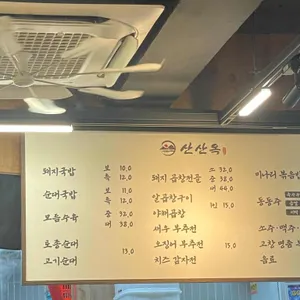 산산옥
돼지국밥 보 10,0
특 12,0
순대국밥 보 11,0
특 12,0
모듬수육 중 32,0
대 38,0
토종순대
고기순대 13,0
돼지 곱창전골 소 32,0
중 38,0
대 44,0
알곱창구이 1인 15,0
야채곱창
새우 부추전
오징어 부추전 15,0
치즈 감자전
미나리 볶음밥
동동주
소주·맥주·
음료